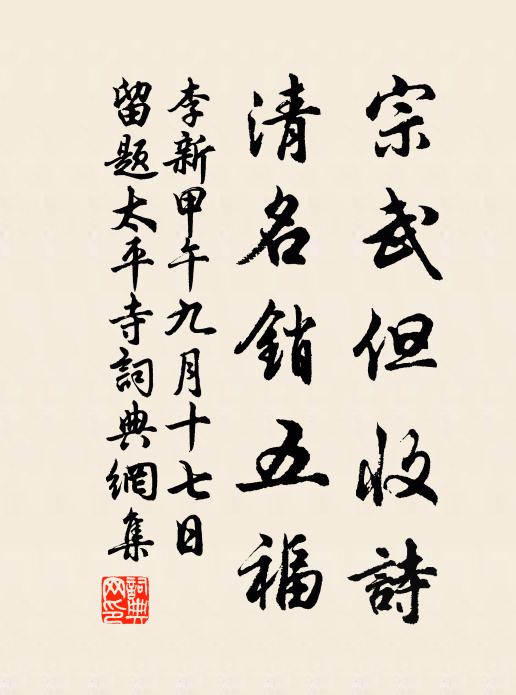 宗武但收詩
清名銷五福
李新甲午九月十七日
留題太平寺詞典網集
詞典网印